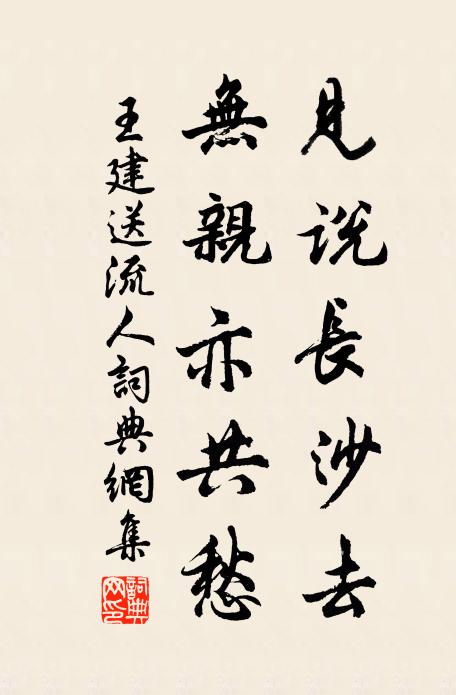 見説長沙去
無親亦共愁
王建送流人詞典網集
詞典